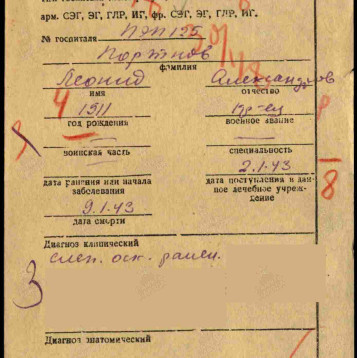 арм. СЭГ, ЭГ, ГЛР, ИГ, фр. СЭГ, ЭГ, ГЛР, ИГ.
№ госпиталя ППГ 125
Портнов
фамилия
Леонид Александров
имя отчество
1911 кр-ец
год рождения военное звание
воинская часть специальность
2.1.43
дата ранения или начала заболевания
дата поступления в данное лечебное учреждение
9.1.43
дата смерти
Диагноз клинический
слеп. оск. ранен.
3
Диагноз анатомический